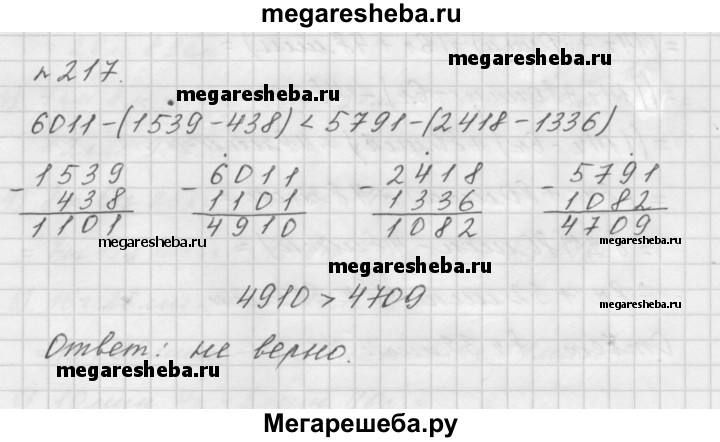 megaresheba.ru
№ 217.
megaresheba.ru
6011-(1539-438) < 5791-(2418-1336)
- 1539 - 6011 - 2418 - 5791
438 1101 1336 1082
1101 4910 1082 4709
megaresheba.ru megaresheba.ru
megaresheba.ru
4910 > 4709
megaresheba.ru
Ответ: не верно.
megaresheba.ru
Мегарешеба.ру